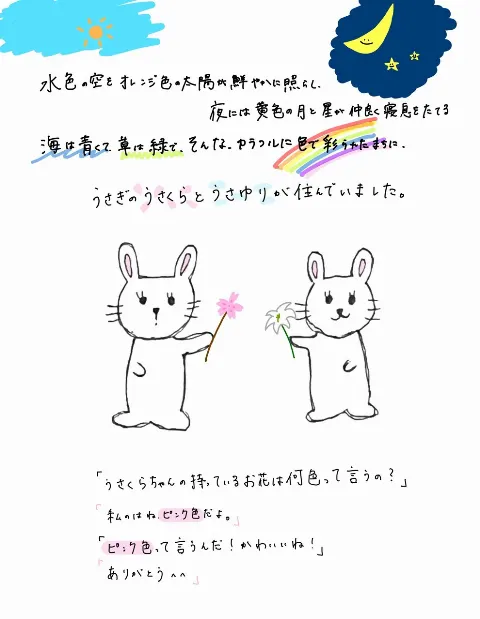 水色の空をオレンジ色の太陽が鮮やかに照らし、
夜には黄色の月と星が仲良く寝息をたてる
海は青くて草は緑で、そんな、カラフルに色で彩られたまちに、
うさぎのうさくらとうさゆりが住んでいました。
「うさくらちゃんの持っているお花は何色って言うの？」
「私のはね、ピンク色だよ。」
「ピンク色って言うんだ！かわいいね！」
「ありがとう^^」